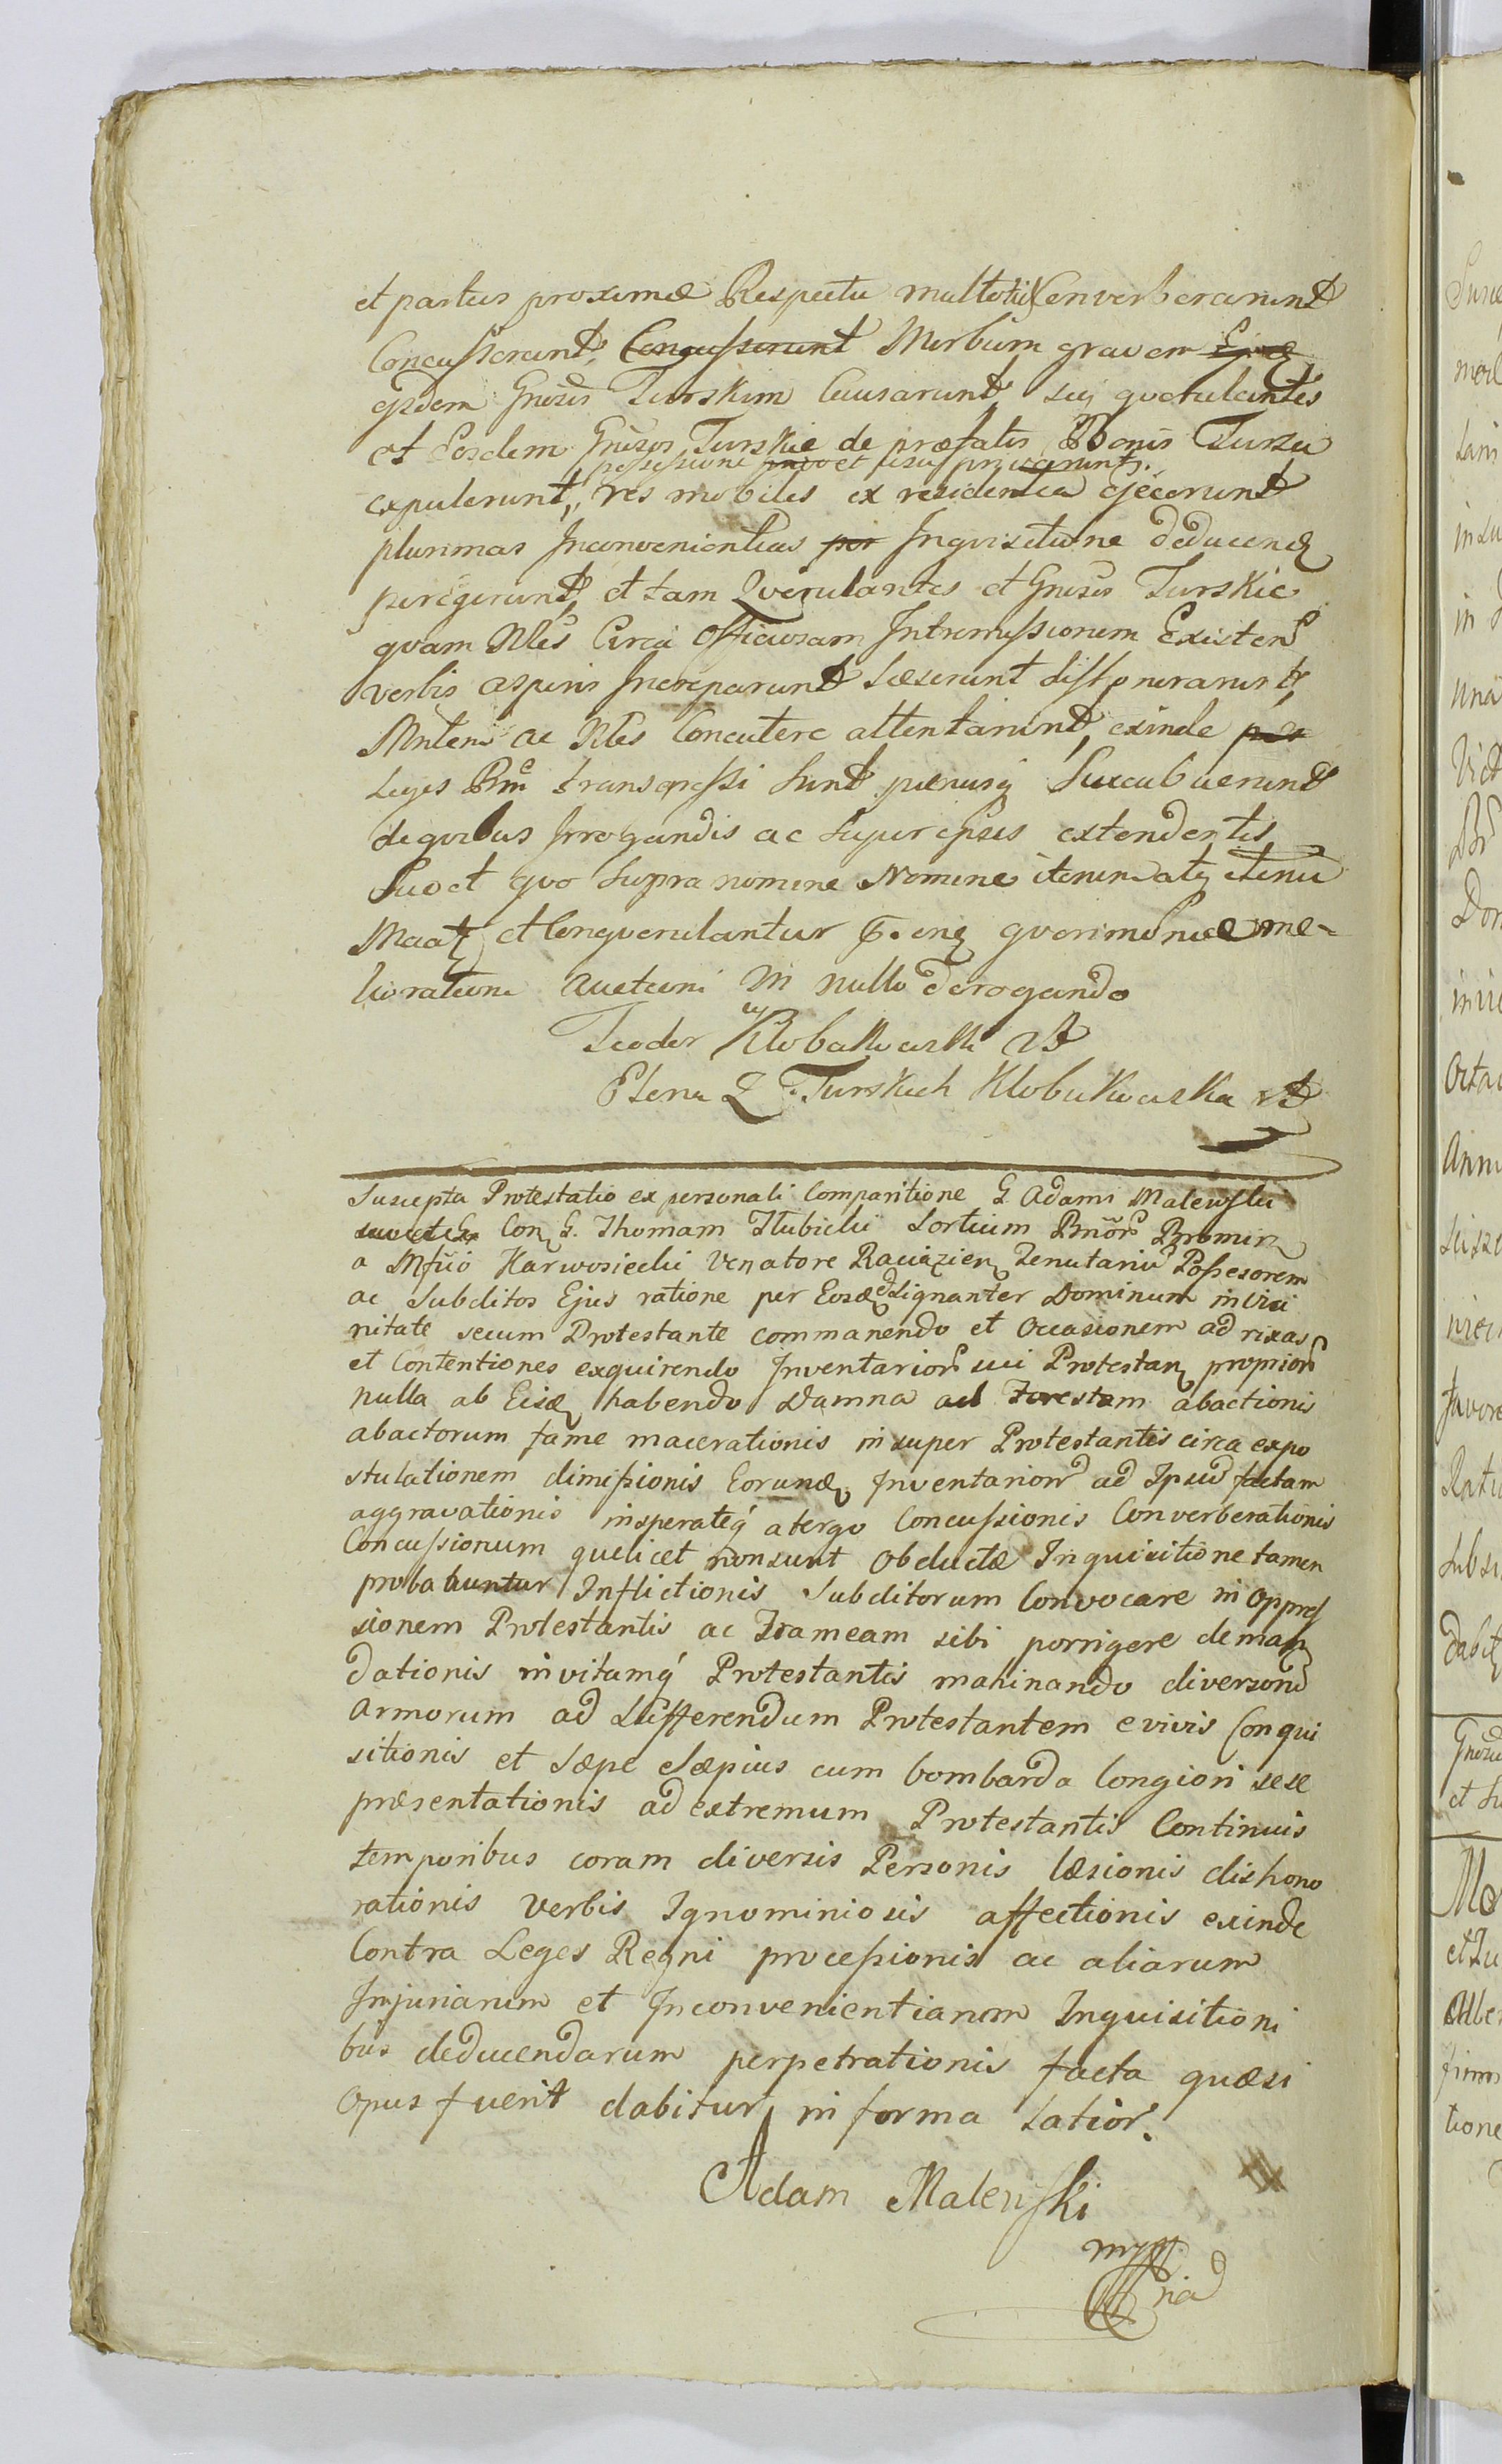 et partus proximæ Respectu multoties Converberarunt
Concusserunt, Concusserunt Morbum gravem
eidem Gnosis Turskim Causarunt, sui querulantes
et Eosdem Gnosos Turskie de præfatis Bonis Tursku
possessione et usu privarunt.
expulerunt, res mobiles ex residentia ejecerunt
plurimas Inconvenientias per Inquisitione deducend
peregerunt, et tam Querulantes et Gnosos Turskie
quam Nbles Circa Officiosam Intromissionem Existen
verbis asperis Increparunt Læserunt dishonorarunt,
Mntem ac Nbles Concutere attentarunt, exinde
Leges Rni transgressi sunt pænasq Succubuerunt
de quibus Irrogandis ac super ipsis extendentis
Suo et quo supra nomine Nomine iterum atq iterum
Maatq et Conquerulantur querimoniæ me-
lioratione Auctione in nullo derogando
Teodor Klobukowski
Elena Z Turskich Klobukowska
Suscepta Protestatio ex personali Comparitione G. Adami Malewski
Con G. Thomam Hubicki Sortium Bnor Bromirz
a Mfico Karwosiecki Venatore Raciązien Tenutariu Possesorem
ac Subditos Ejus ratione per Eosd Signanter Dominum in vici
nitate secum Protestante commanendo et Occasionem ad rixas
et Contentiones exquirendo Inventarior sui Protestan proprior
nulla ab Eisd habendo Damna ad Forestam abactionis
abactorum fame macerationis insuper Protestantis circa expo
stulationem dimissionis Eorund Inventarior ad Ipsu factam
aggravationis insperateq atergo Concussionis Converberationis
Concussionum quelicet non sunt Obductæ Inquisitione tamen
probabuntur Inflictionis Subditorum Convocare in Oppres
sionem Protestantis ac Frameam sibi porrigere deman
dationis invitamq Protestantis machinando diversor
Armorum ad Sufferendum Protestantem e vivis Conqui
sitionis et Sæpe Sæpius cum bombarda longiori sese
præsentationis ad extremum Protestantis Continuis
temporibus coram diversis Personis læsionis dishono
rationis Verbis Ignominiosis affectionis exinde
Contra Leges Regni processionis ac aliarum
Injuriarum et Inconvenientiarum Inquisitioni
bus deducendarum perpetrationis facta quæsi
Opus fuerit dabitur in forma latior.
Adam Malewski
mpp